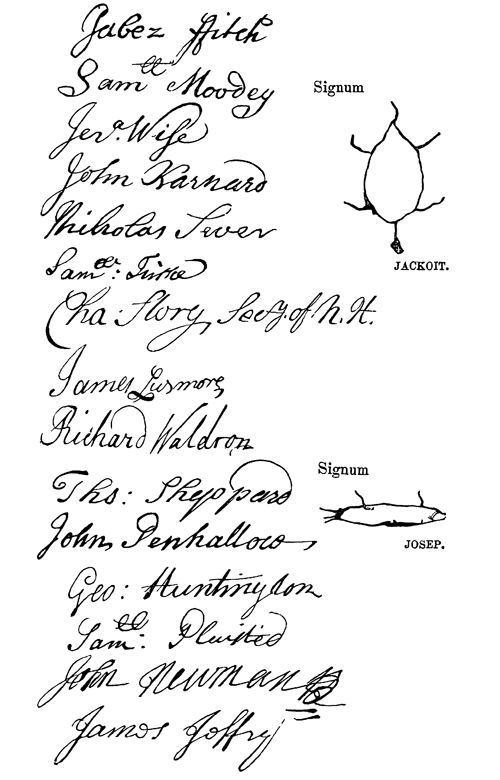 Jabez ffitch
Samll Moodey
Jera. Wise
John Barnard
Nicholas Sever
Saml: Tirrce
Cha: Story, Secy. of N. H.
James Lusmore
Richard Waldron
Ths: Sheppard
John Penhallow
Geo: Huntingdon
Samll: Pluisted
John Newman
James Joffry
Signum
JACKOIT.
Signum
JOSEP.